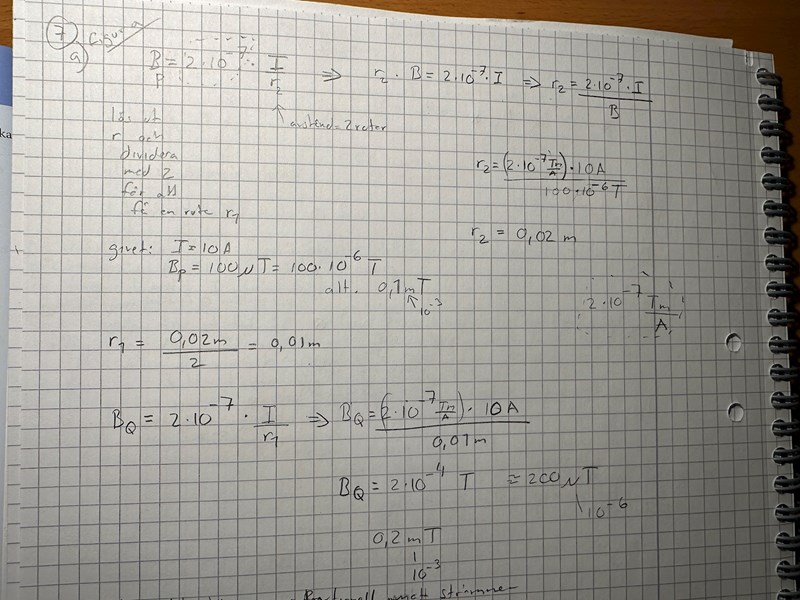 7
a)
B = 2·10^-7 · I/r₂ ⇒ r₂ · B = 2·10^-7 · I ⇒ r₂ = 2·10^-7 · I / B
P
avstånd = 2 rutor
lös ut
r och
dividera
med 2
för att
få en ruta r₁
r₂ = (2·10^-7 Tm/A) · 10A / 100·10^-6 T
r₂ = 0,02 m
givet: I = 10A
Bp = 100μT = 100·10^-6 T
alt. 0,1mT
10^-3
2·10^-7 Tm/A
r₁ = 0,02m / 2 = 0,01m
B_Q = 2·10^-7 · I/r₁ ⇒ B_Q = (2·10^-7 Tm/A) · 10A / 0,01m
B_Q = 2·10^-4 T = 200μT
10^-6
0,2mT
10^-3
strömmen